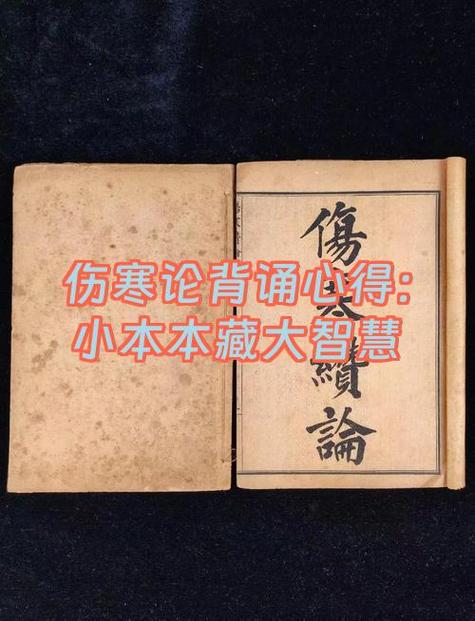 伤寒论背诵心得:
小本本藏大智慧
傷寒纘論